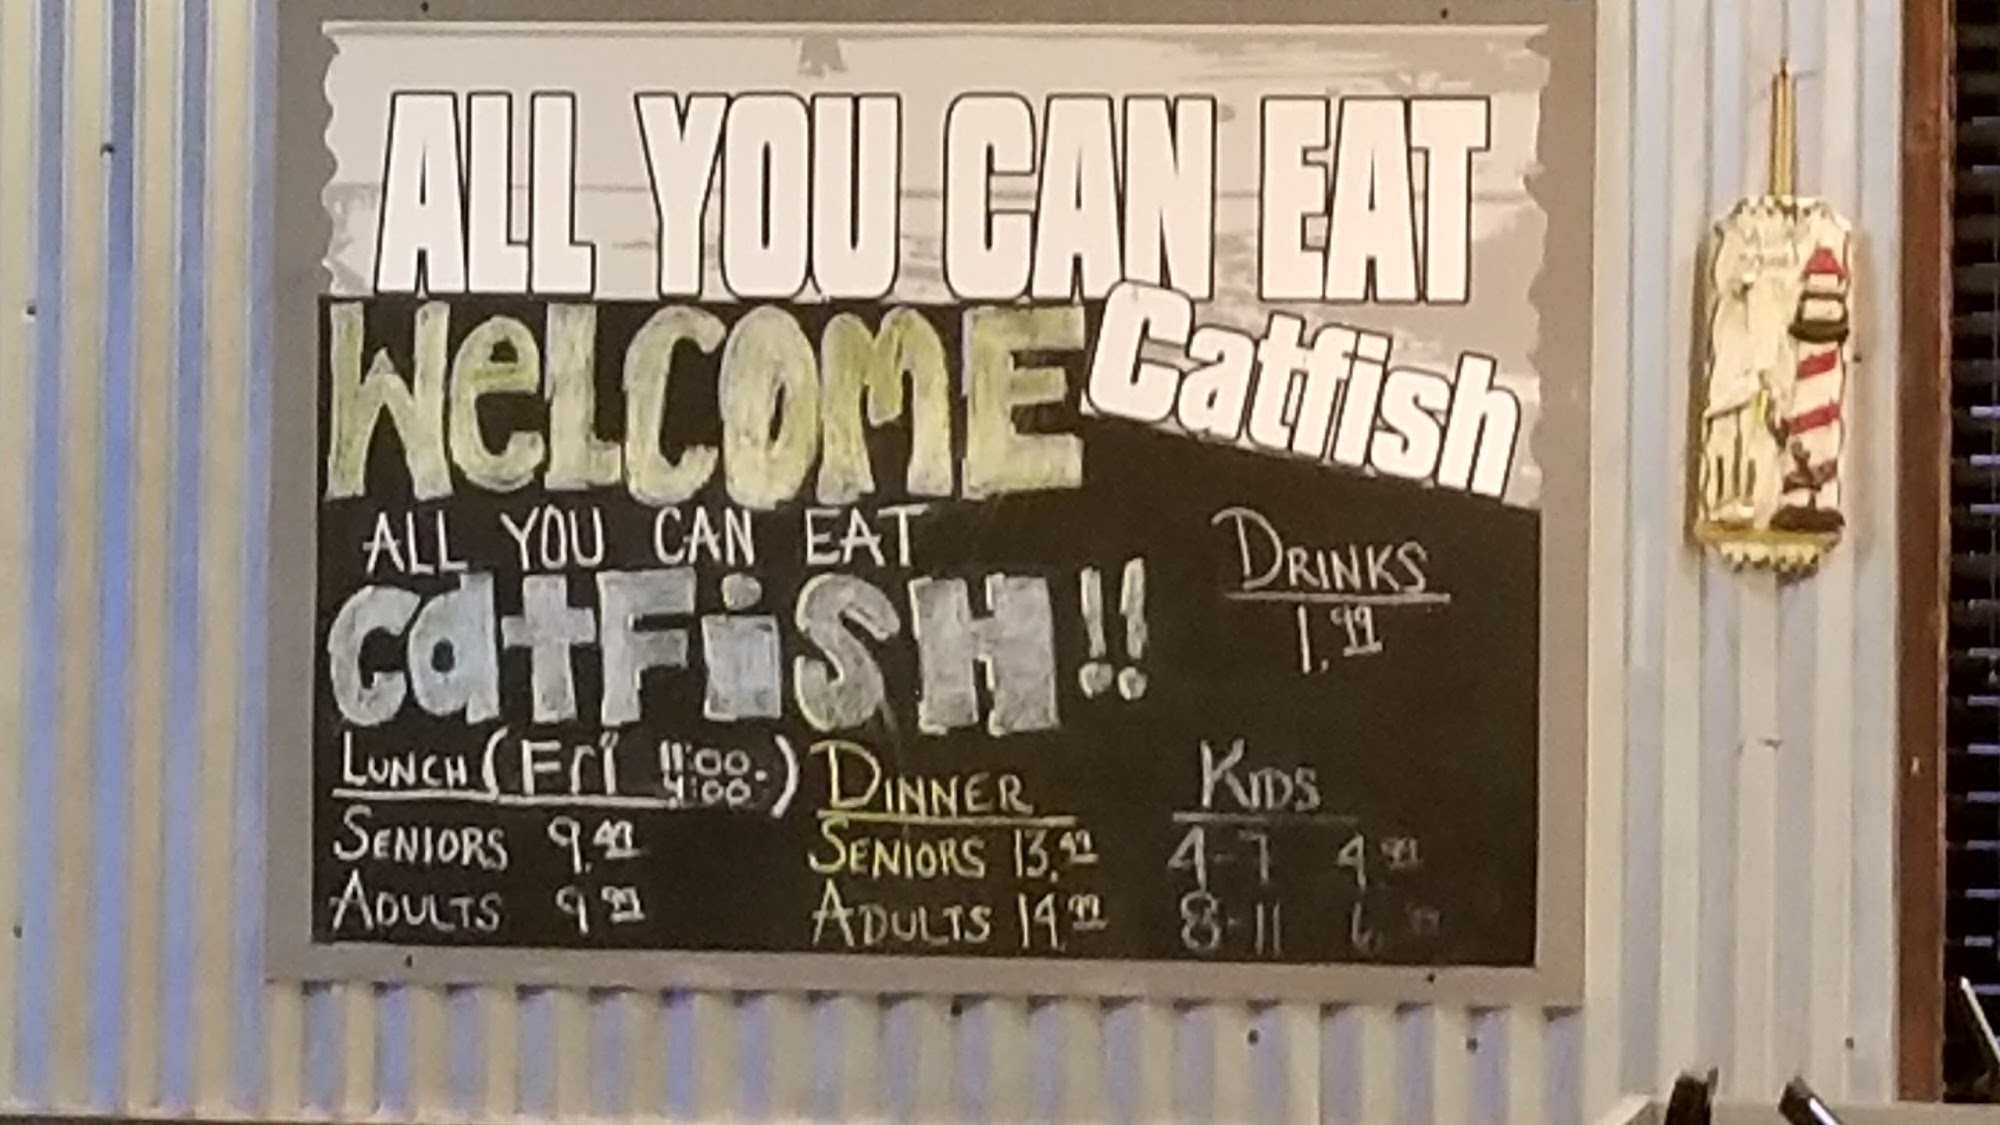 ALL YOU CAN EAT
Catfish
WELCOME
ALL YOU CAN EAT
CATFISH!!
DRINKS
1.99
LUNCH (Fri 11:00-4:00)
SENIORS 9.49
ADULTS 9.99
DINNER
SENIORS 13.49
ADULTS 14.99
KIDS
4-7 4.99
8-11 6.